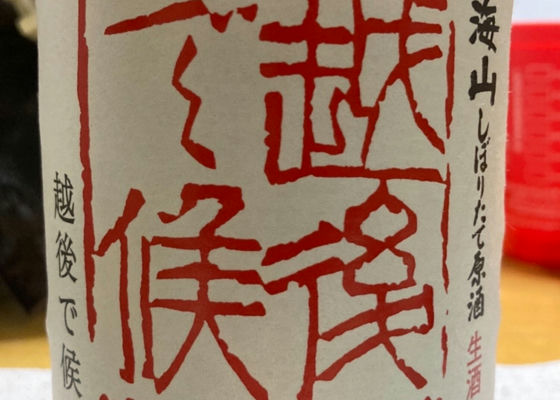 海山しぼりたて原酒
生酒
越後
で候
越後で候